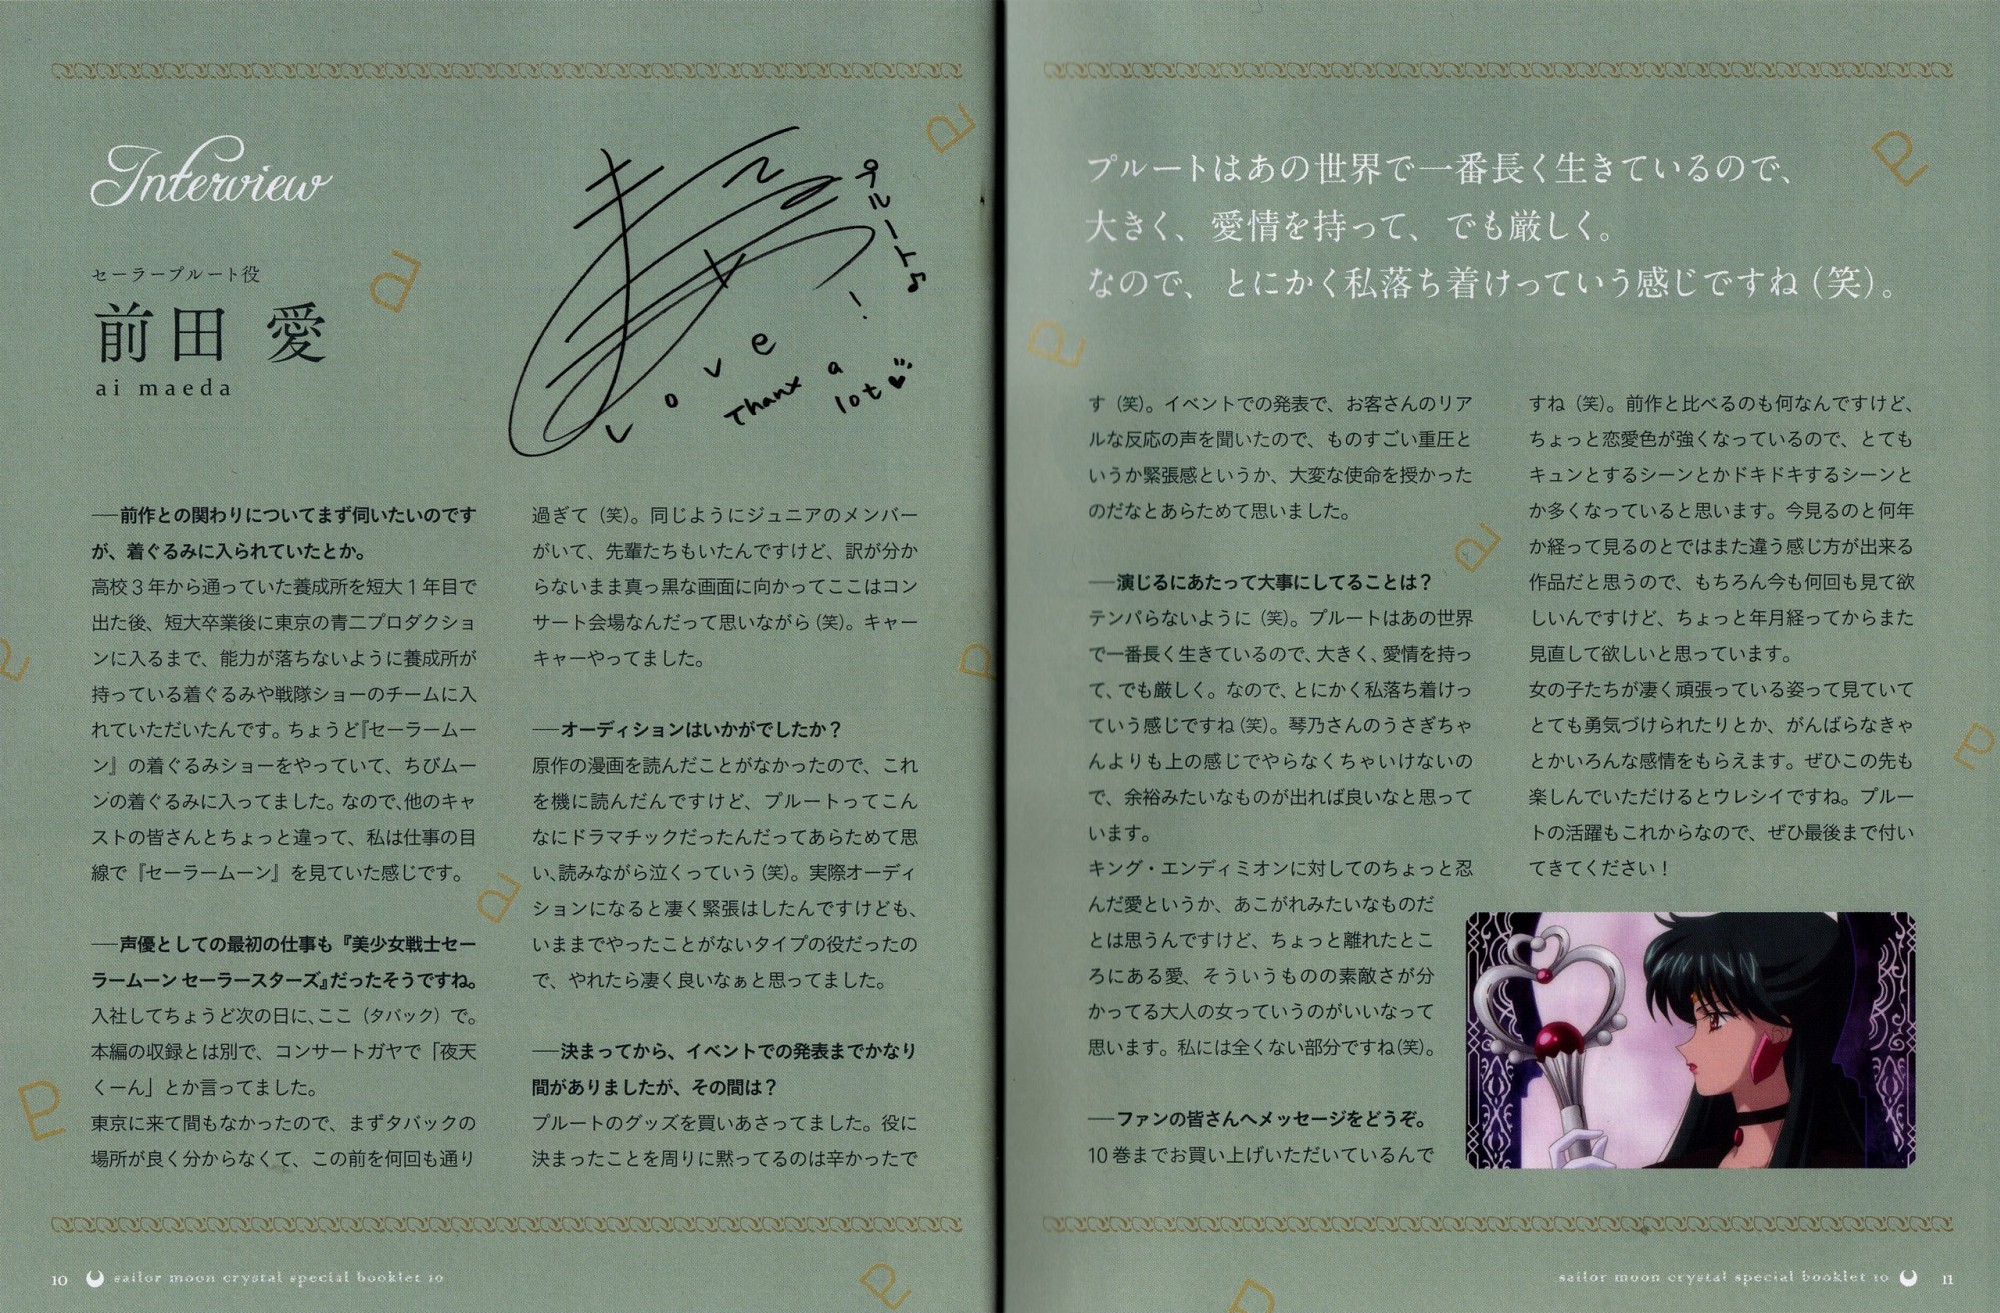 Interview
セーラープルート役
前田 愛
ai maeda
プルート♪
Love!
Thanx a
lot
──前作との関わりについてまず伺いたいのです
が、着ぐるみに入られていたとか。
高校3年から通っていた養成所を短大1年目で
出た後、短大卒業後に東京の青二プロダクショ
ンに入るまで、能力が落ちないように養成所が
持っている着ぐるみや戦隊ショーのチームに入
れていただいたんです。ちょうど『セーラームー
ン』の着ぐるみショーをやっていて、ちびムー
ンの着ぐるみに入ってました。なので、他のキャ
ストの皆さんとちょっと違って、私は仕事の目
線で『セーラームーン』を見ていた感じです。
──声優としての最初の仕事も『美少女戦士セー
ラームーン セーラースターズ』だったそうですね。
入社してちょうど次の日に、ここ（タバック）で。
本編の収録とは別で、コンサートガヤで「夜天
くーん」とか言ってました。
東京に来て間もなかったので、まずタバックの
場所が良く分からなくて、この前を何回も通り
過ぎて（笑）。同じようにジュニアのメンバー
がいて、先輩たちもいたんですけど、訳が分か
らないまま真っ黒な画面に向かってここはコン
サート会場なんだって思いながら（笑）。キャー
キャーやってました。
──オーディションはいかがでしたか？
原作の漫画を読んだことがなかったので、これ
を機に読んだんですけど、プルートってこん
なにドラマチックだったんだってあらためて思
い、読みながら泣くっていう（笑）。実際オーディ
ションになると凄く緊張はしたんですけども、
いままでやったことがないタイプの役だったの
で、やれたら凄く良いなぁと思ってました。
──決まってから、イベントでの発表までかなり
間がありましたが、その間は？
プルートのグッズを買いあさってました。役に
決まったことを周りに黙ってるのは辛かったで
10 sailor moon crystal special booklet 10
プルートはあの世界で一番長く生きているので、
大きく、愛情を持って、でも厳しく。
なので、とにかく私落ち着けっていう感じですね（笑）。
す（笑）。イベントでの発表で、お客さんのリア
ルな反応の声を聞いたので、ものすごい重圧と
いうか緊張感というか、大変な使命を授かった
のだなとあらためて思いました。
──演じるにあたって大事にしてることは？
テンパらないように（笑）。プルートはあの世界
で一番長く生きているので、大きく、愛情を持っ
て、でも厳しく。なので、とにかく私落ち着けっ
ていう感じですね（笑）。琴乃さんのうさぎちゃ
んよりも上の感じでやらなくちゃいけないの
で、余裕みたいなものが出れば良いなと思って
います。
キング・エンディミオンに対してのちょっと忍
んだ愛というか、あこがれみたいなものだ
とは思うんですけど、ちょっと離れたとこ
ろにある愛、そういうものの素敵さが分
かってる大人の女っていうのがいいなって
思います。私には全くない部分ですね（笑）。
──ファンの皆さんへメッセージをどうぞ。
10巻までお買い上げいただいているんで
すね（笑）。前作と比べるのも何なんですけど、
ちょっと恋愛色が強くなっているので、とても
キュンとするシーンとかドキドキするシーンと
か多くなっていると思います。今見るのと何年
か経って見るのとではまた違う感じ方が出来る
作品だと思うので、もちろん今も何回も見て欲
しいんですけど、ちょっと年月経ってからまた
見直して欲しいと思っています。
女の子たちが凄く頑張っている姿って見ていて
とても勇気づけられたりとか、がんばらなきゃ
とかいろんな感情をもらえます。ぜひこの先も
楽しんでいただけるとウレシイですね。プルー
トの活躍もこれからなので、ぜひ最後まで付い
てきてください！
sailor moon crystal special booklet 10 11